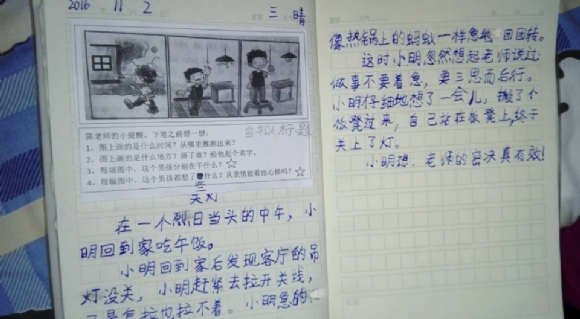 2016 11 2
三 晴
自拟标题
陈老师的小提醒,下笔之前想一想:
1、图上画的是什么时间?从哪里推测出来?
2、图上画的是什么地方?画了谁?给他起个名字。
3、每幅图中,这个男孩分别在干什么?☆
4、每幅图中,这个男孩都想了什么?从表情能看出心情吗?☆
关灯
在一个烈日当头的中午,小
明回到家吃午饭。
小明回到家后发现客厅的吊
灯没关,小明赶紧去拉开关线,
可是怎拉也拉不着。小明急的
像热锅上的蚂蚁一样急地团团转。
这时小明忽然想起老师说过
做事不要着急,要三思而后行。
小明仔细地想了一会儿,搬了个
板凳过来,自己站在板凳上,终于
关上了灯。
小明想,老师的容决真有效!